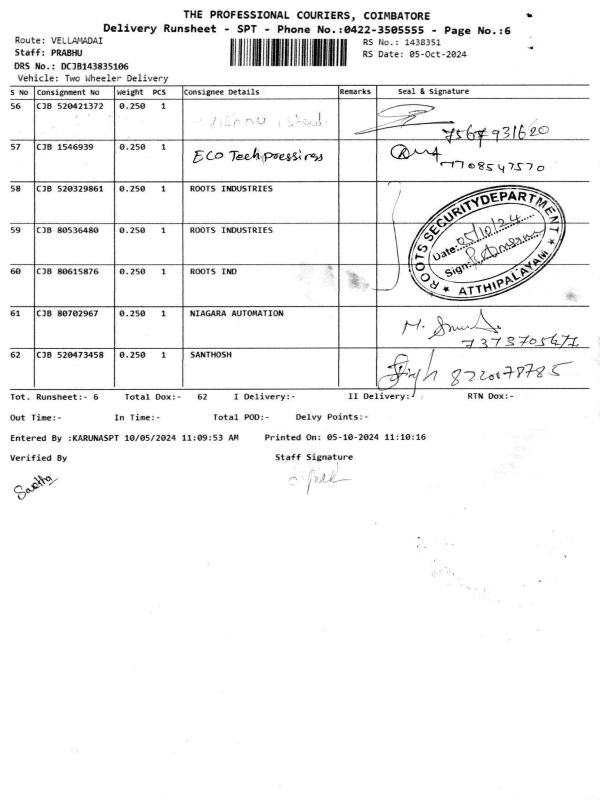 THE PROFESSIONAL COURIERS, COIMBATORE
Delivery Runsheet - SPT - Phone No.:0422-3505555 - Page No.:6
Route: VELLAMADAI
Staff: PRABHU
DRS No.: DCJB143835106
Vehicle: Two Wheeler Delivery
RS No.: 1438351
RS Date: 05-Oct-2024
S No Consignment No Weight PCS Consignee Details Remarks Seal & Signature
56 CJB 520421372 0.250 1
57 CJB 1546939 0.250 1 ECO Tech pressiress 7708547570
58 CJB 520329861 0.250 1 ROOTS INDUSTRIES
59 CJB 80536480 0.250 1 ROOTS INDUSTRIES
60 CJB 80615876 0.250 1 ROOTS IND
ROOTS SECURITY DEPARTMENT
Date: 05/10/24
Sign:
★ ATTHIPALAYAM ★
61 CJB 80702967 0.250 1 NIAGARA AUTOMATION 7373705671
62 CJB 520473458 0.250 1 SANTHOSH 8220178785
Tot. Runsheet:- 6 Total Dox:- 62 I Delivery:- II Delivery:- RTN Dox:-
Out Time:- In Time:- Total POD:- Delvy Points:-
Entered By :KARUNASPT 10/05/2024 11:09:53 AM Printed On: 05-10-2024 11:10:16
Verified By Staff Signature